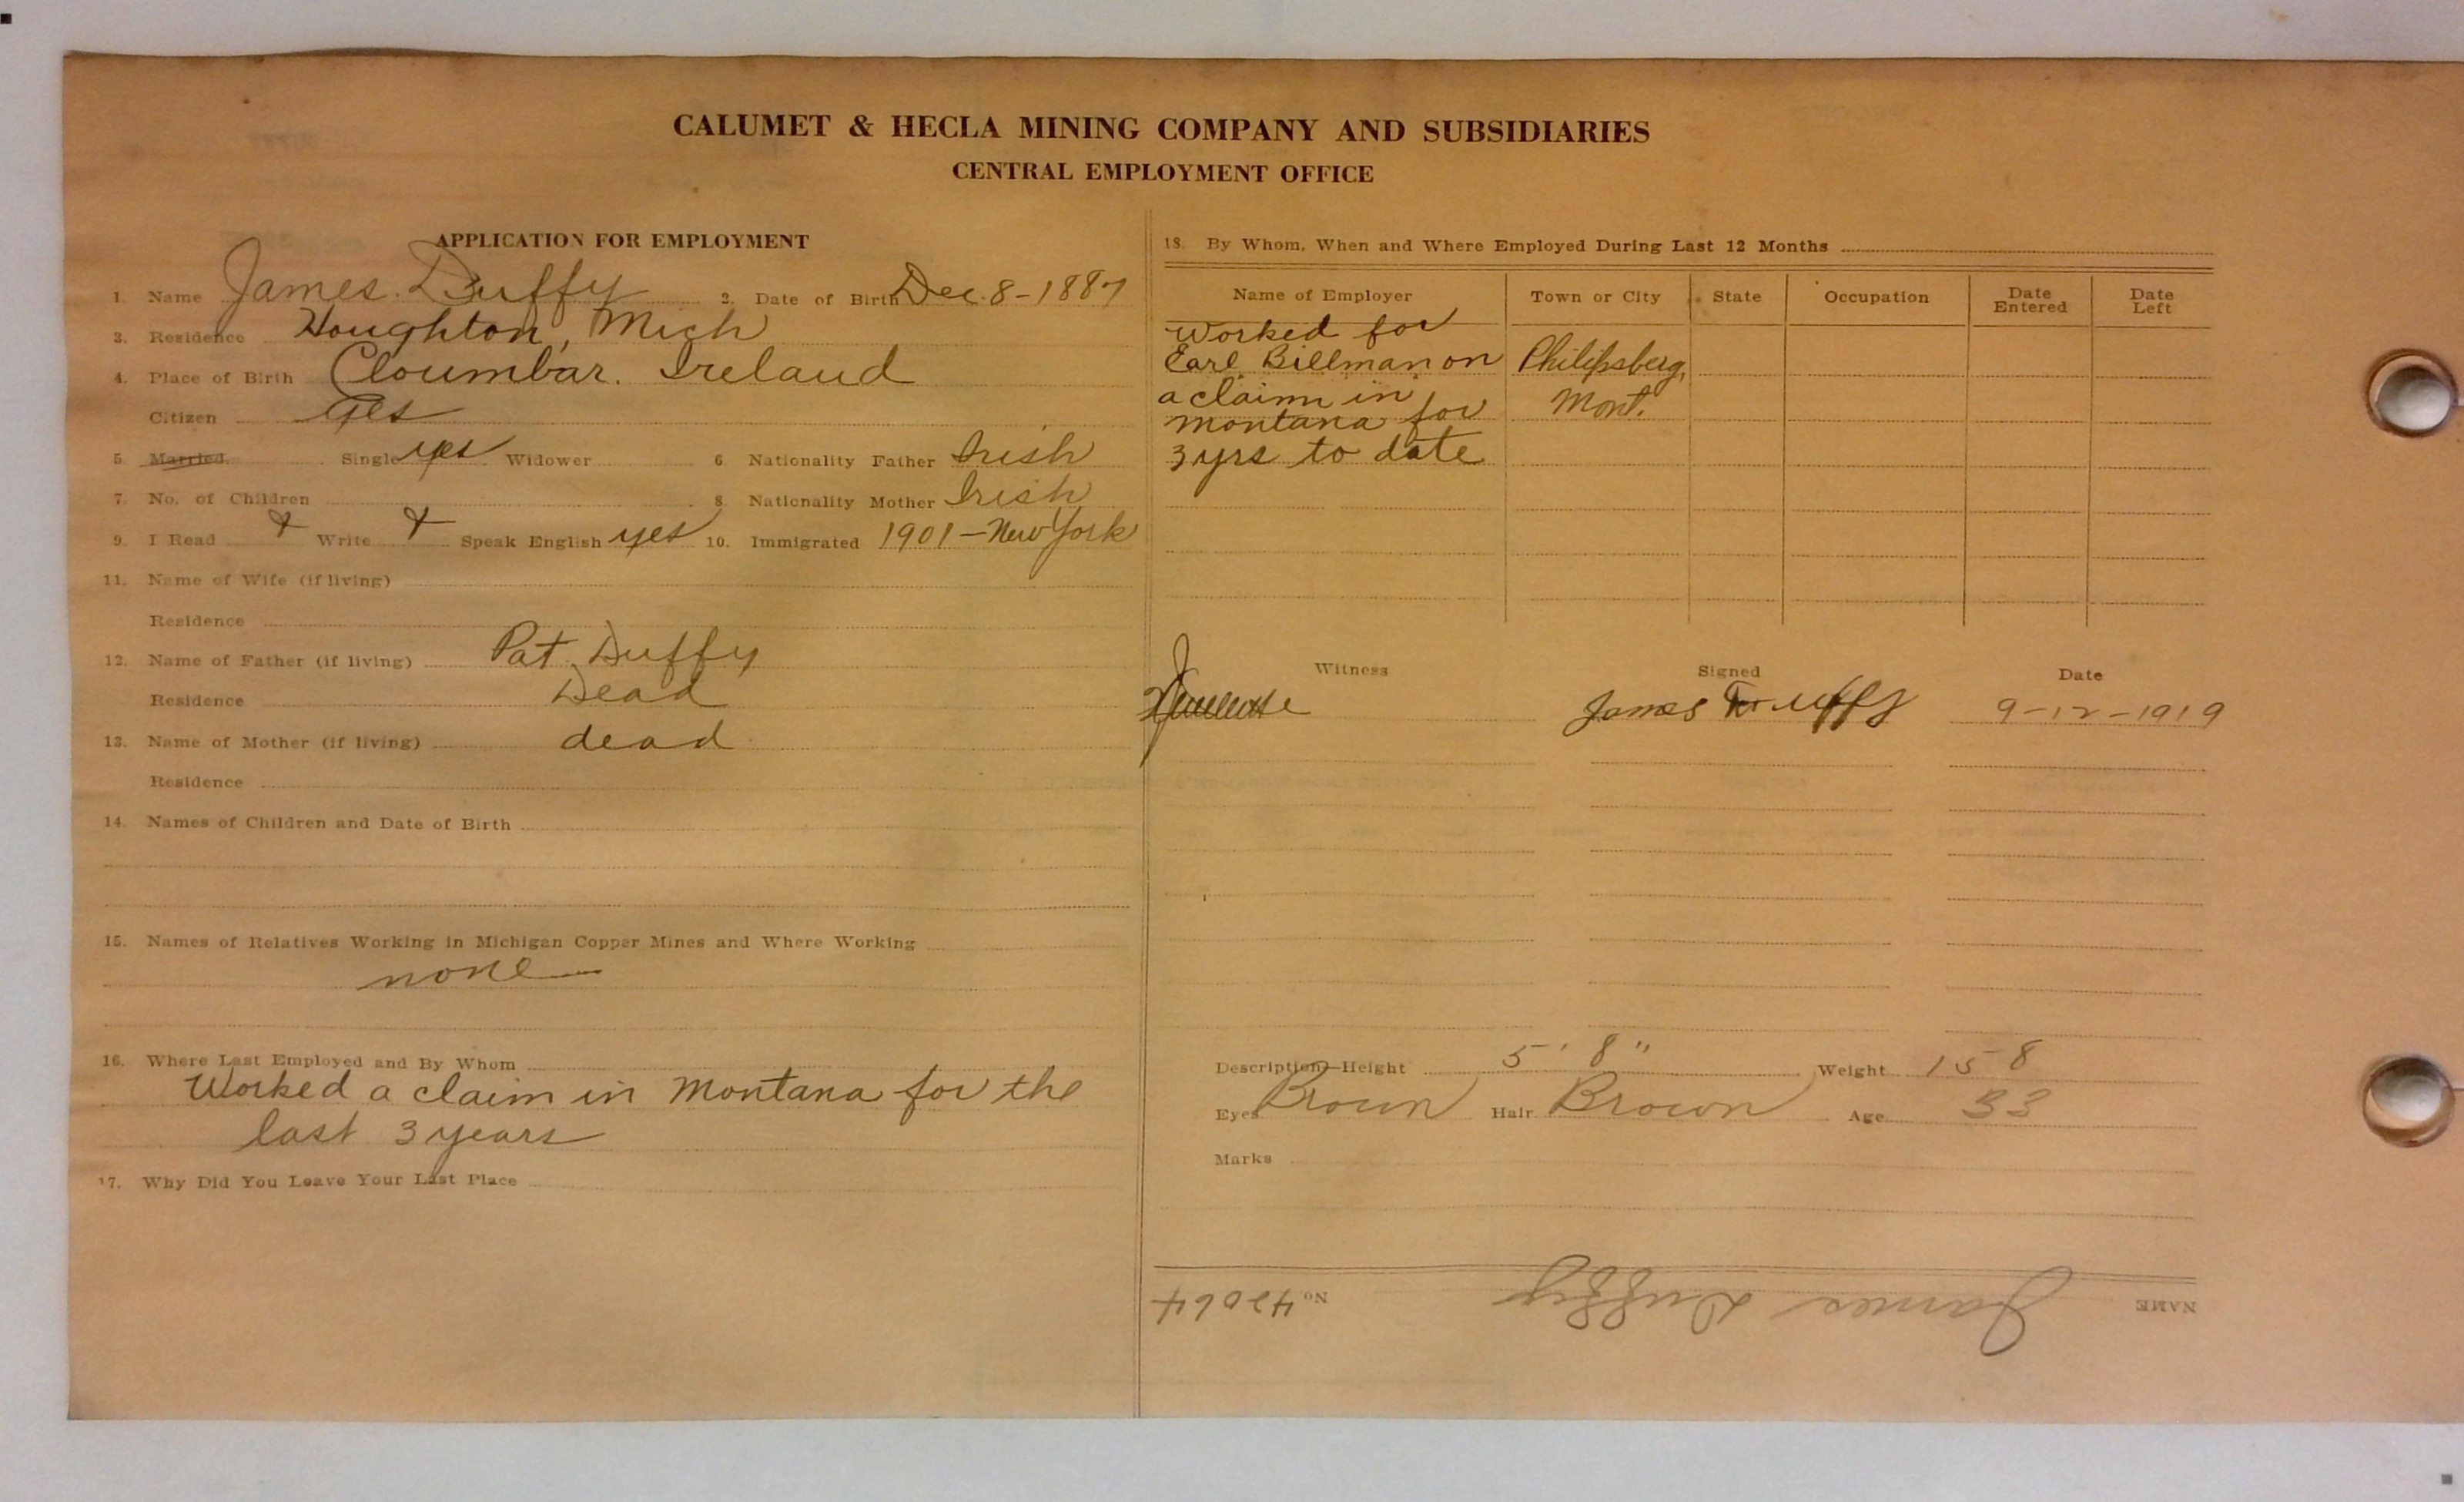 CALUMET & HECLA MINING COMPANY AND SUBSIDIARIES
CENTRAL EMPLOYMENT OFFICE
APPLICATION FOR EMPLOYMENT
1. Name James Duffy 2. Date of Birth Dec. 8-1887
3. Residence Houghton, Mich
4. Place of Birth Cloumbar. Ireland
Citizen yes
5. Married Single yes Widower 6. Nationality Father Irish
7. No. of Children 8. Nationality Mother Irish
9. I Read & Write & Speak English yes 10. Immigrated 1901-New York
11. Name of Wife (if living)
Residence
12. Name of Father (if living) Pat. Duffy
Residence Dead
13. Name of Mother (if living) dead
Residence
14. Names of Children and Date of Birth
15. Names of Relatives Working in Michigan Copper Mines and Where Working
none
16. Where Last Employed and By Whom
Worked a claim in Montana for the
last 3 years
17. Why Did You Leave Your Last Place
18. By Whom, When and Where Employed During Last 12 Months
Name of Employer Town or City State Occupation Date Entered Date Left
Worked for
Earl Billman on Philipsberg,
a claim in Mont.
montana for
3 yrs to date
Witness Signed Date
James Duffy 9-12-1919
Description—Height 5' 8" Weight 158
Eyes Brown Hair Brown Age 33
Marks
NAME James Duffy No 42064